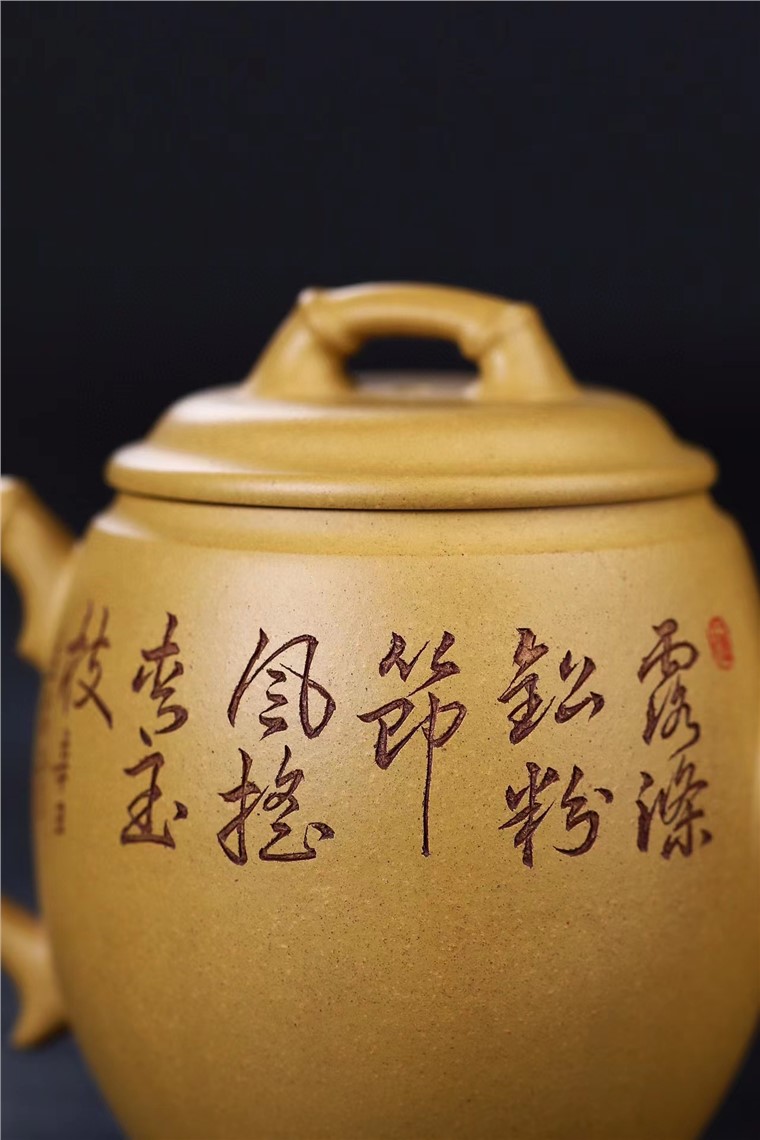 露滌
鉛粉
節
風搖
青玉
枝